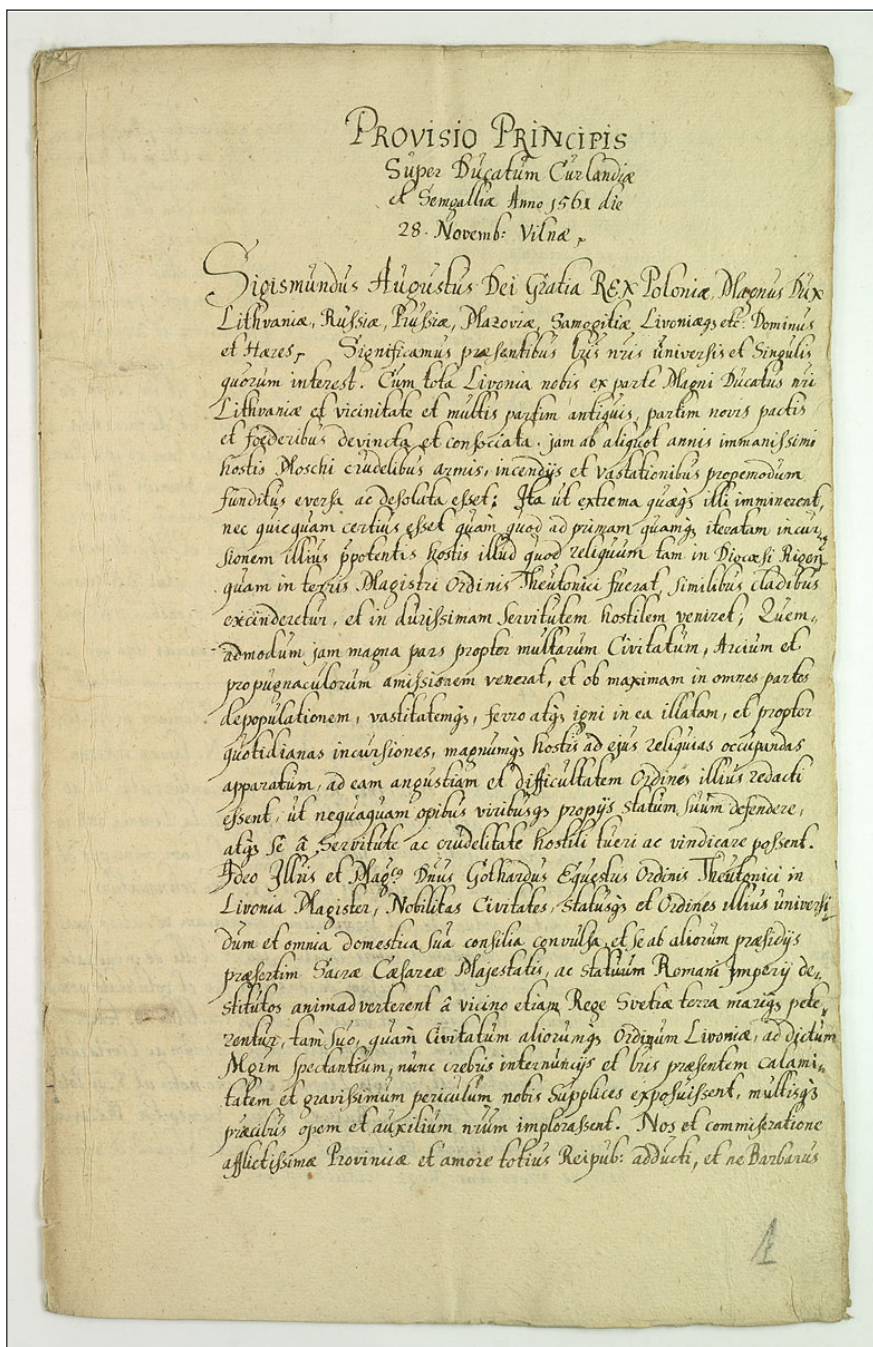 PROVISIO PRINCIPIS
Super Ducatum Curlandiæ
et Semgalliæ Anno 1561 die
28. Novemb: Vilnæ.
Sigismundus Augustus Dei Gratia REX Poloniæ, Magnus Dux
Lithvaniæ, Russiæ, Prussiæ, Mazoviæ, Samogitiæ, Livoniæqꝫ etc: Dominus
et Hæres, Significamus præsentibus lris nris universis et Singulis
quorum interest. Cum tota Livonia nobis ex parte Magni Ducatus nri
Lithvaniæ et vicinitate et multis partim antiquis, partim novis pactis
et foederibus devincta et consociata. jam ab aliquot annis immanissimi
hostis Moschi crudelibus armis, incendijs et vastationibus propemodum
funditus eversa ac desolata esset: Ita ut extrema quæqꝫ illi imminerent,
nec quicquam certius esset quam quod ad primam quamqꝫ iteratam incur„
sionem illius p̄potentis hostis illud quod reliquum tam in Dioecesi Rigen:
quam in terris Magistri Ordinis Theutonici fuerat, similibus cladibus
excinderetur, et in durissimam servitutem hostilem veniret; Quem„
admodum jam magna pars propter multarum Civitatum, Arcium et
propugnaculorum amissionem venerat, et ob maximam in omnes partes
depopulationem, vastitatemqꝫ, ferro atqꝫ igni in ea illatam, et propter
quotidianas incursiones, magnumqꝫ hostis ad ejus reliquias occupandas
apparatum, ad eam angustiam et difficultatem Ordines illius redacti
essent, ut nequaquam opibus viribusqꝫ propijs statum suum defendere,
atqꝫ se â Servitute ac crudelitate hostili tueri ac vindicare possent.
Ideo Illus et Mag̃cꝫ Dnus Gothardus Equestus Ordinis Theutonici in
Livonia Magister, Nobilitas Civitates, statusqꝫ et Ordines illius universi
dum et omnia domestica sua consilia convulsa, et se ab aliorum præsidijs
præsertim Sacræ Cæsareæ Majestatis, ac statuum Romani Imperij de„
stitutos animadverterent â vicino etiam Rege Svetiæ terra mariqꝫ pete„
rentur, tam suo, quam Civitatum aliorumqꝫ Ordinum Livoniæ, ad dictum
Mgrm spectantium, nunc crebris internuncijs et lris præsentem calami„
tatem et gravissimum periculum nobis Supplices exposuissent, multisqꝫ
præcibus opem et auxilium nrum implorassent. Nos et commiseratione
afflictissimæ Provinciæ et amore totius Reipub: adducti, et ne Barbarus
1